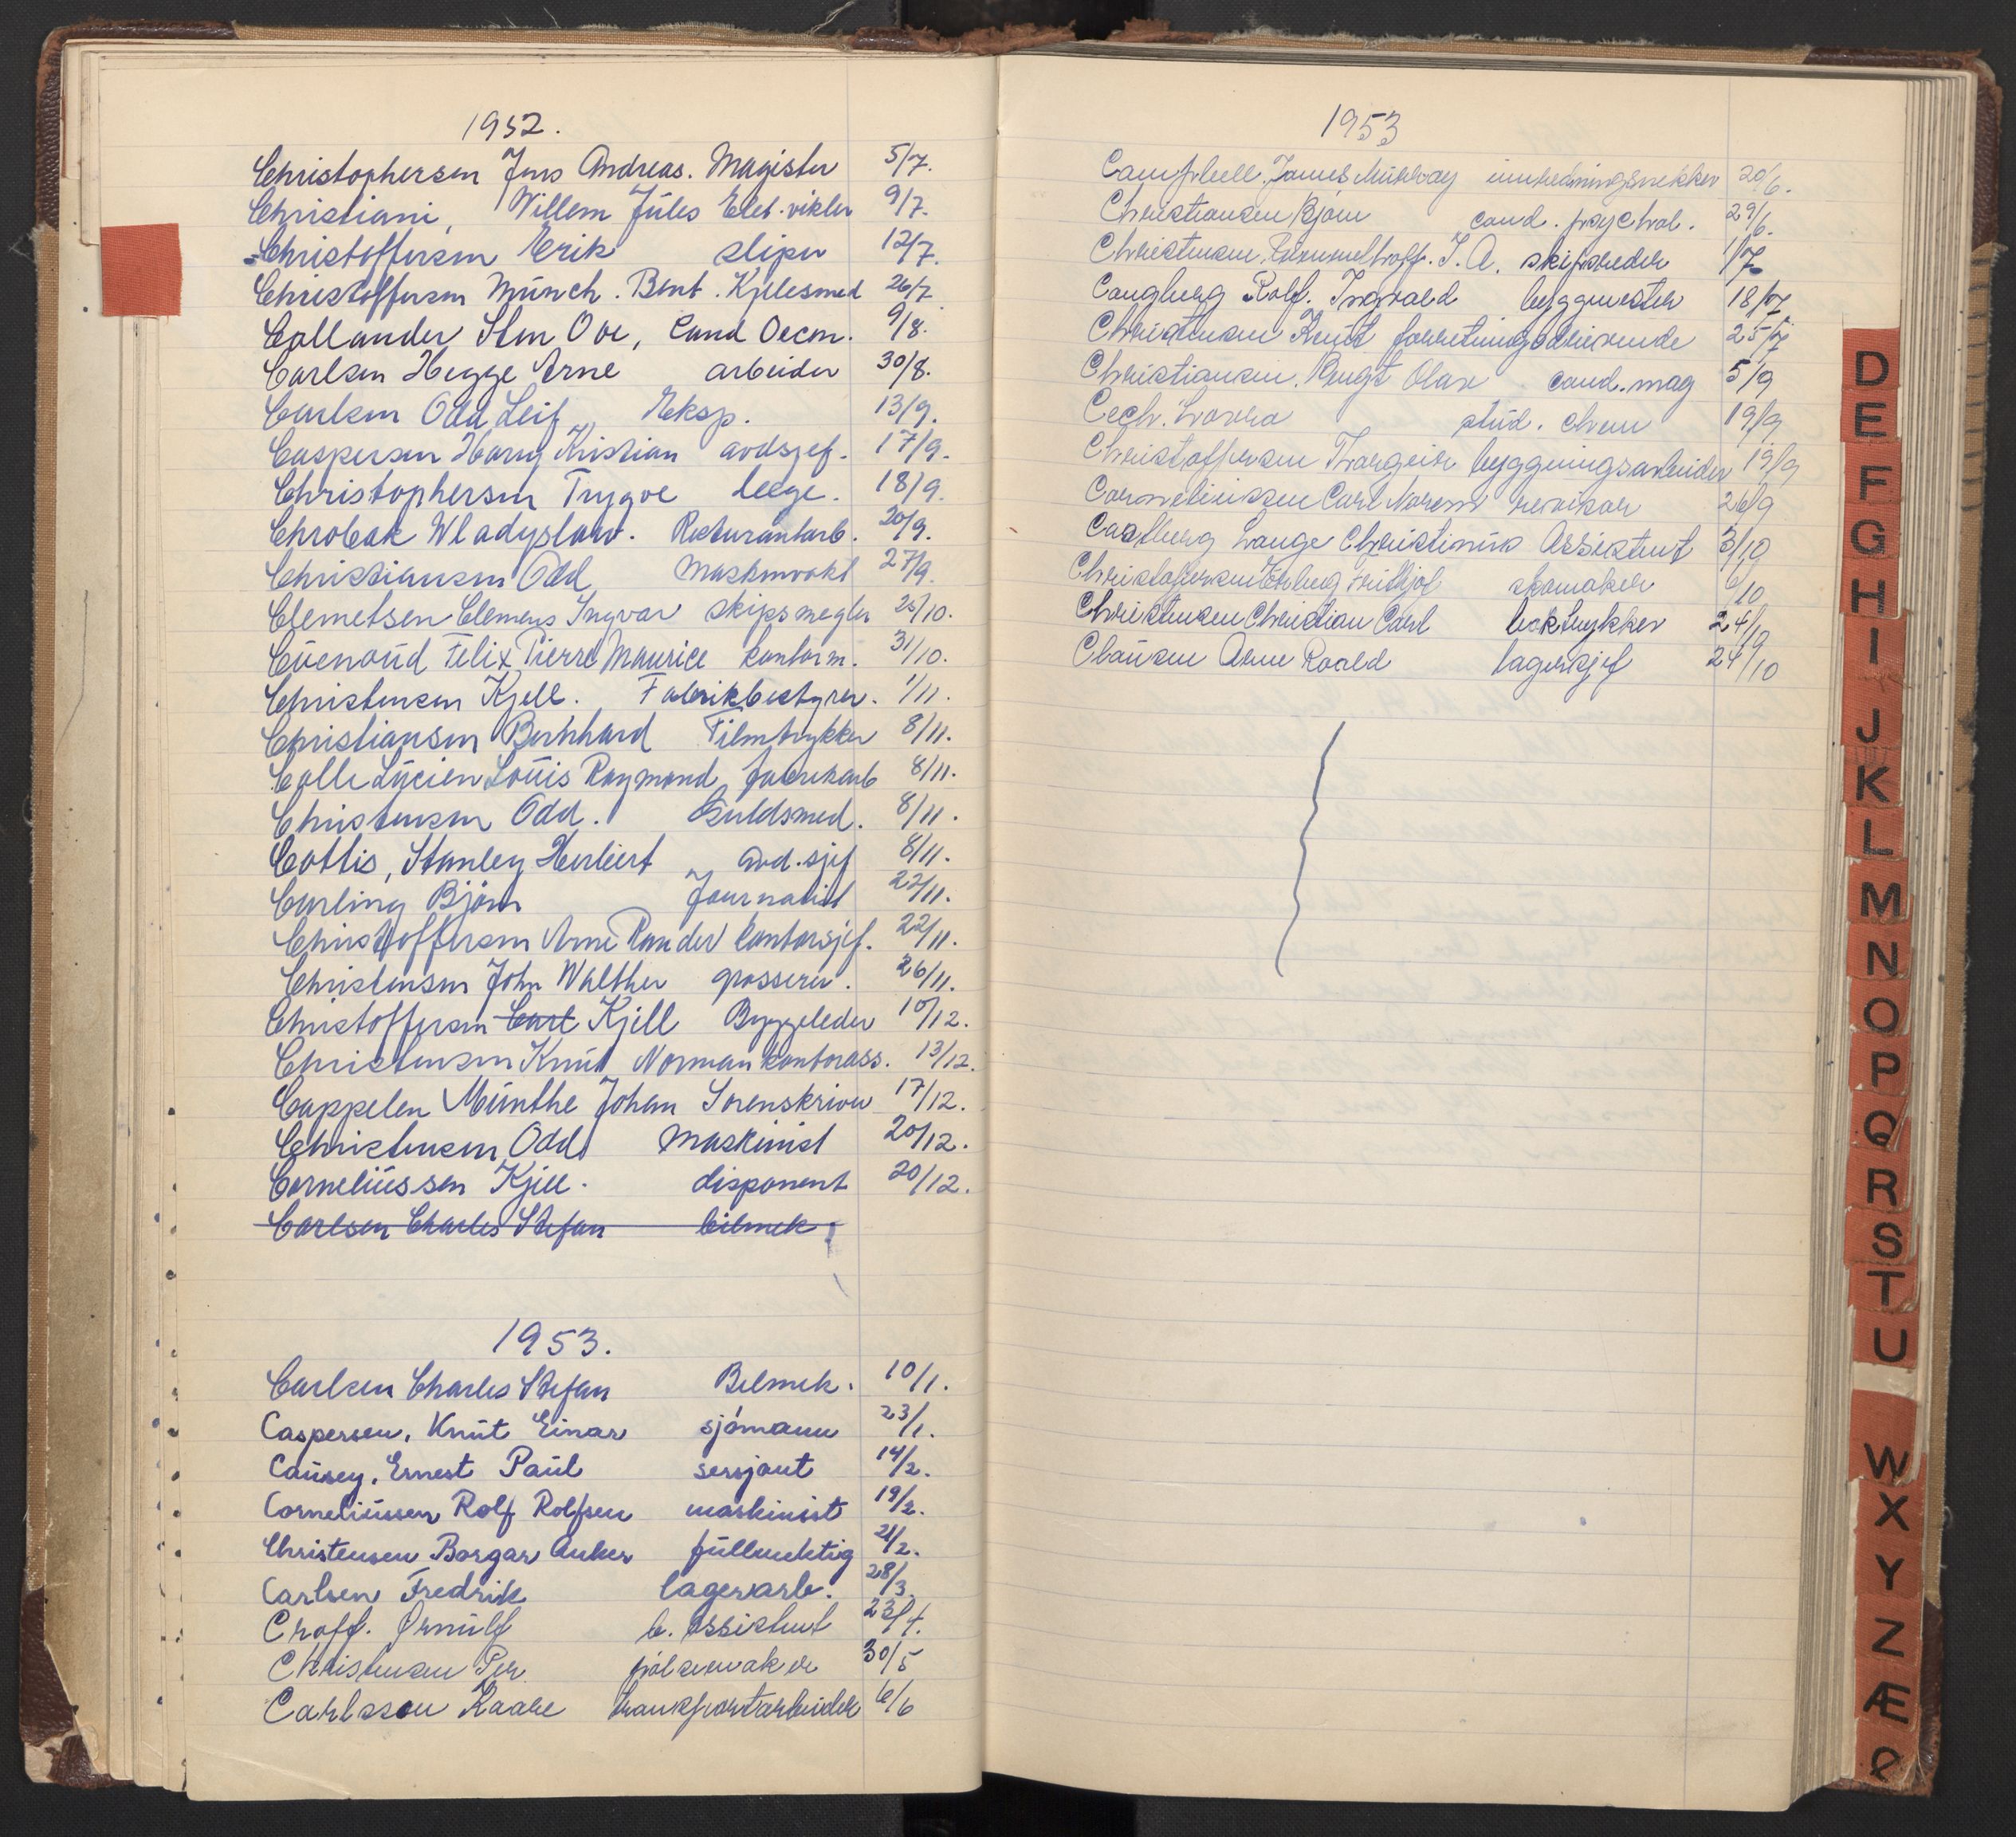 1952.
Christophersen Jens Andreas. Magister 5/7.
Christiani, Willem Jules Elet. vikler 9/7.
Christoffersen Erik sliper 12/7.
Christoffersen Münch. Bent. Kjelesmed 26/7
Collander Sten Ove, Cand Oecon. 9/8.
Carlsen Hegge Arne arbeider 30/8.
Carlsen Odd Leif Eksp. 13/9.
Caspersen Harry Kristian avdsjef. 17/9.
Christophersen Trygve lege. 18/9.
Chrobak Wladyslaw. Resturantarb. 20/9.
Christiansen Odd Maskinvakt 27/9.
Clemetsen Clemens Ingvar skipsmegler 25/10.
Cuenoud Felix Pierre Maurice kontorm. 31/10.
Christensen Kjell. Fabrikbestyrer. 1/11.
Christiansen Bernhard Filmtrykker 8/11.
Colle Lucien Louis Raymond fabrikarb 8/11.
Christensen Odd. Guldsmed. 8/11.
Cottis, Stanley Herbert avd. sjef 8/11.
Carling Bjørn Journalist 22/11.
Christoffersen Arne Rander kontorsjef. 22/11.
Christensen John Walther grosserer. 26/11.
Christoffersen Carl Kjell Byggeleder 10/12.
Christensen Knut Norman kontorass. 13/12.
Cappelen Munthe Johan Sorenskriver 17/12.
Christensen Odd Maskinist 20/12.
Corneliussen Kjell. disponent 20/12.
Carlsen Charles Stefan bilmek.
1953.
Carlsen Charles Stefan Bilmek. 10/1.
Caspersen, Knut Einar sjømann 23/1.
Causey, Ernest Paul sersjant 14/2.
Corneliussen Rolf Rolfsen maskinist 19/2.
Christensen Borgar Anker fullmektig 21/2.
Carlsen Fredrik lagerarb. 28/3.
Croff. Ørnulf b. assistent 23/4.
Christensen Per pølsemaker 30/5
Carlsson Kaare transportarbeider 6/6
1953
Campbell. James Murray innredningsnekker 20/6.
Christiansen Bjørn cand. psychol. 29/6.
Christensen, J. A. skipsreder 1/7
Caugberg Rolf. Ingvald byggmester 18/7
Christensen Knut forretningsdrivende 25/7
Christiansen. Bengt Olav cand. mag 5/9
Cech. stud. chem 19/9
Christoffersen Thorgeir bygningsarbeider 19/9
Corneliussen Carl revisor 26/9
Castberg Lange Christinius Assistent 3/10
Christophersen Fritjof skomaker 6/10
Christensen Christian Carl boktrykker 24/10
Clausen Arne Roald lagersjef 24/10
D
E
F
G
H
I
J
K
L
M
N
O
P
Q
R
S
T
U
W
X
Y
Z
Æ